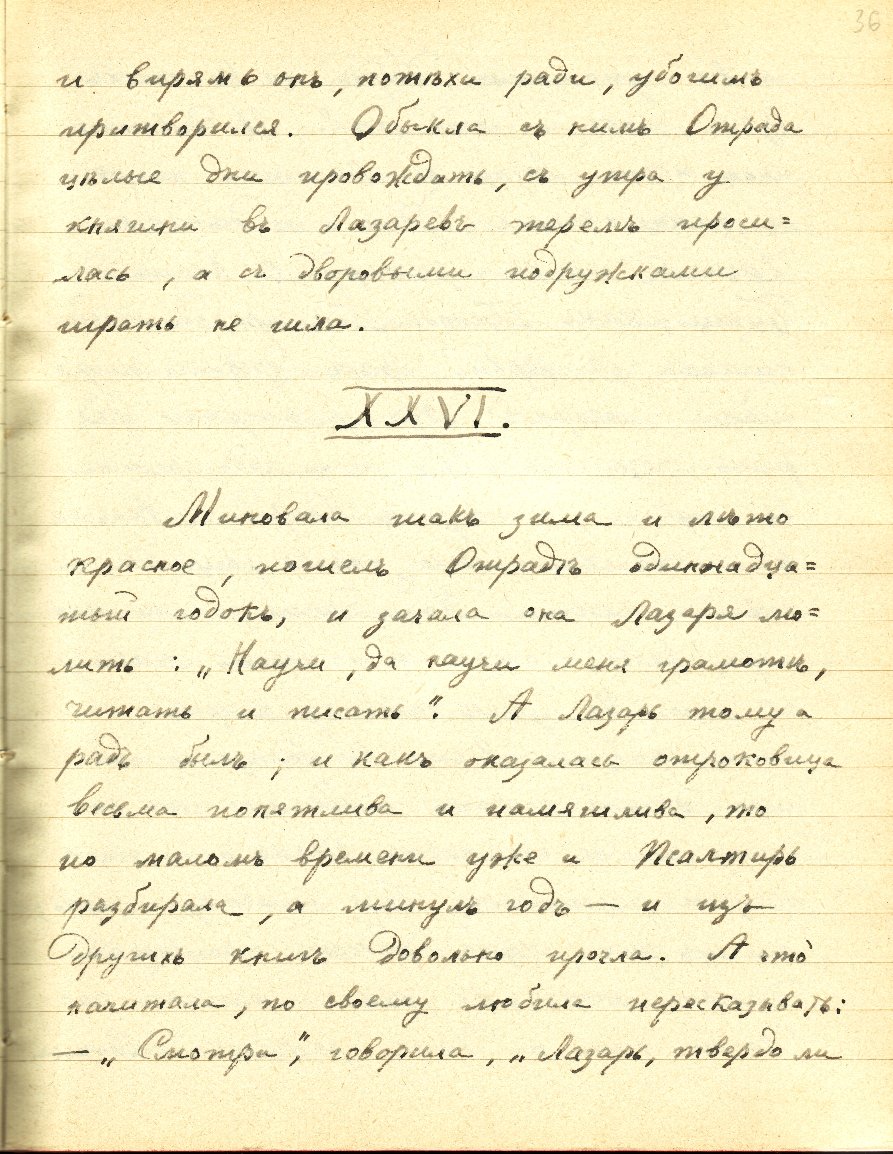 36
и впрямь онъ, потѣхи ради, убогимъ
притворился. Обыкла съ нимъ Отрада
цѣлые дни провождать, съ утра у
княгини въ Лазаревъ теремъ проси=
лась, а съ дворовыми подружками
играть не шла.
XXVI.
Миновала такъ зима и лѣто
красное, пошелъ Отрадѣ одиннадца=
тый годокъ, и зачала она Лазаря мо=
лить: „Научи, да научи меня грамотѣ,
читать и писать“. А Лазарь тому и
радъ былъ; и какъ оказалась отроковица
весьма понятлива и памятлива, то
по маломъ времени уже и Псалтирь
разбирала, а минулъ годъ — и изъ
другихъ книгъ довольно прочла. А что
начитала, по своему любила пересказывать:
— „Смотри“, говорила, „Лазарь, твердо ли